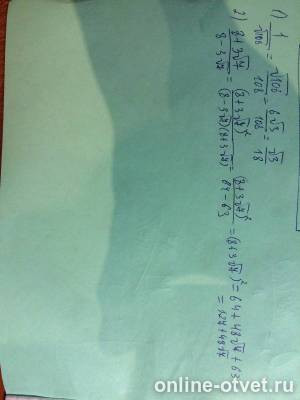 1) 1/√108 = √108/108 = 6√3/108 = √3/18
2) (8+3√7)/(8-3√7) = (8+3√7)²/((8-3√7)(8+3√7)) = (8+3√7)²/(64-63) = (8+3√7)² = 64+48√7+63
= 127+48√7
online-otvet.ru